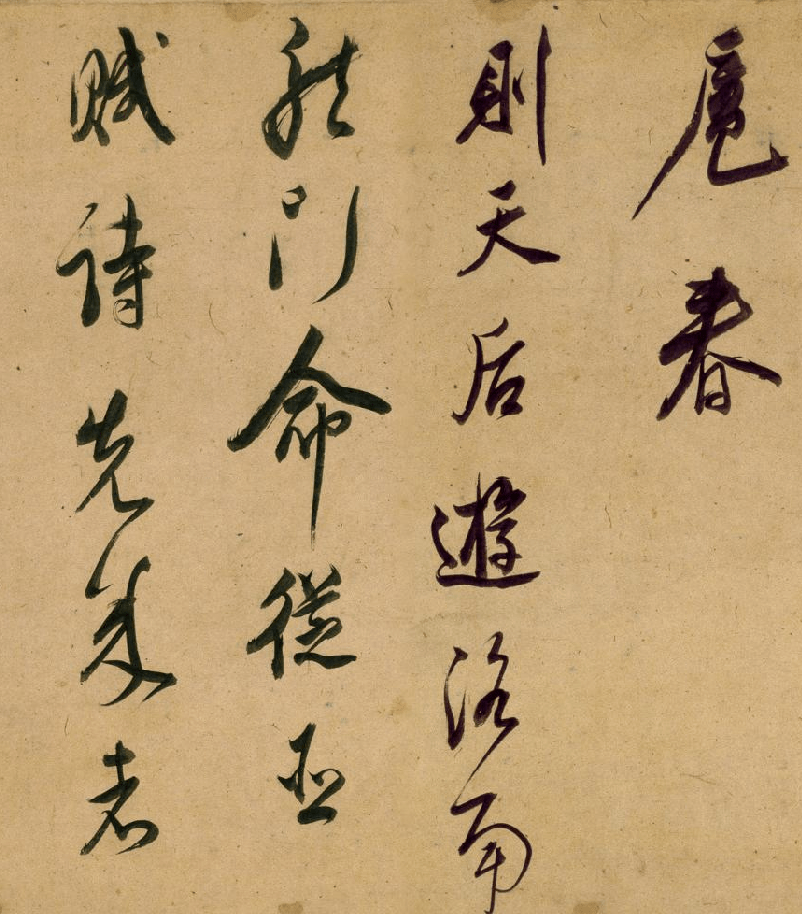 扈春
則天后遊洛南
龍門命從臣
賦詩先者